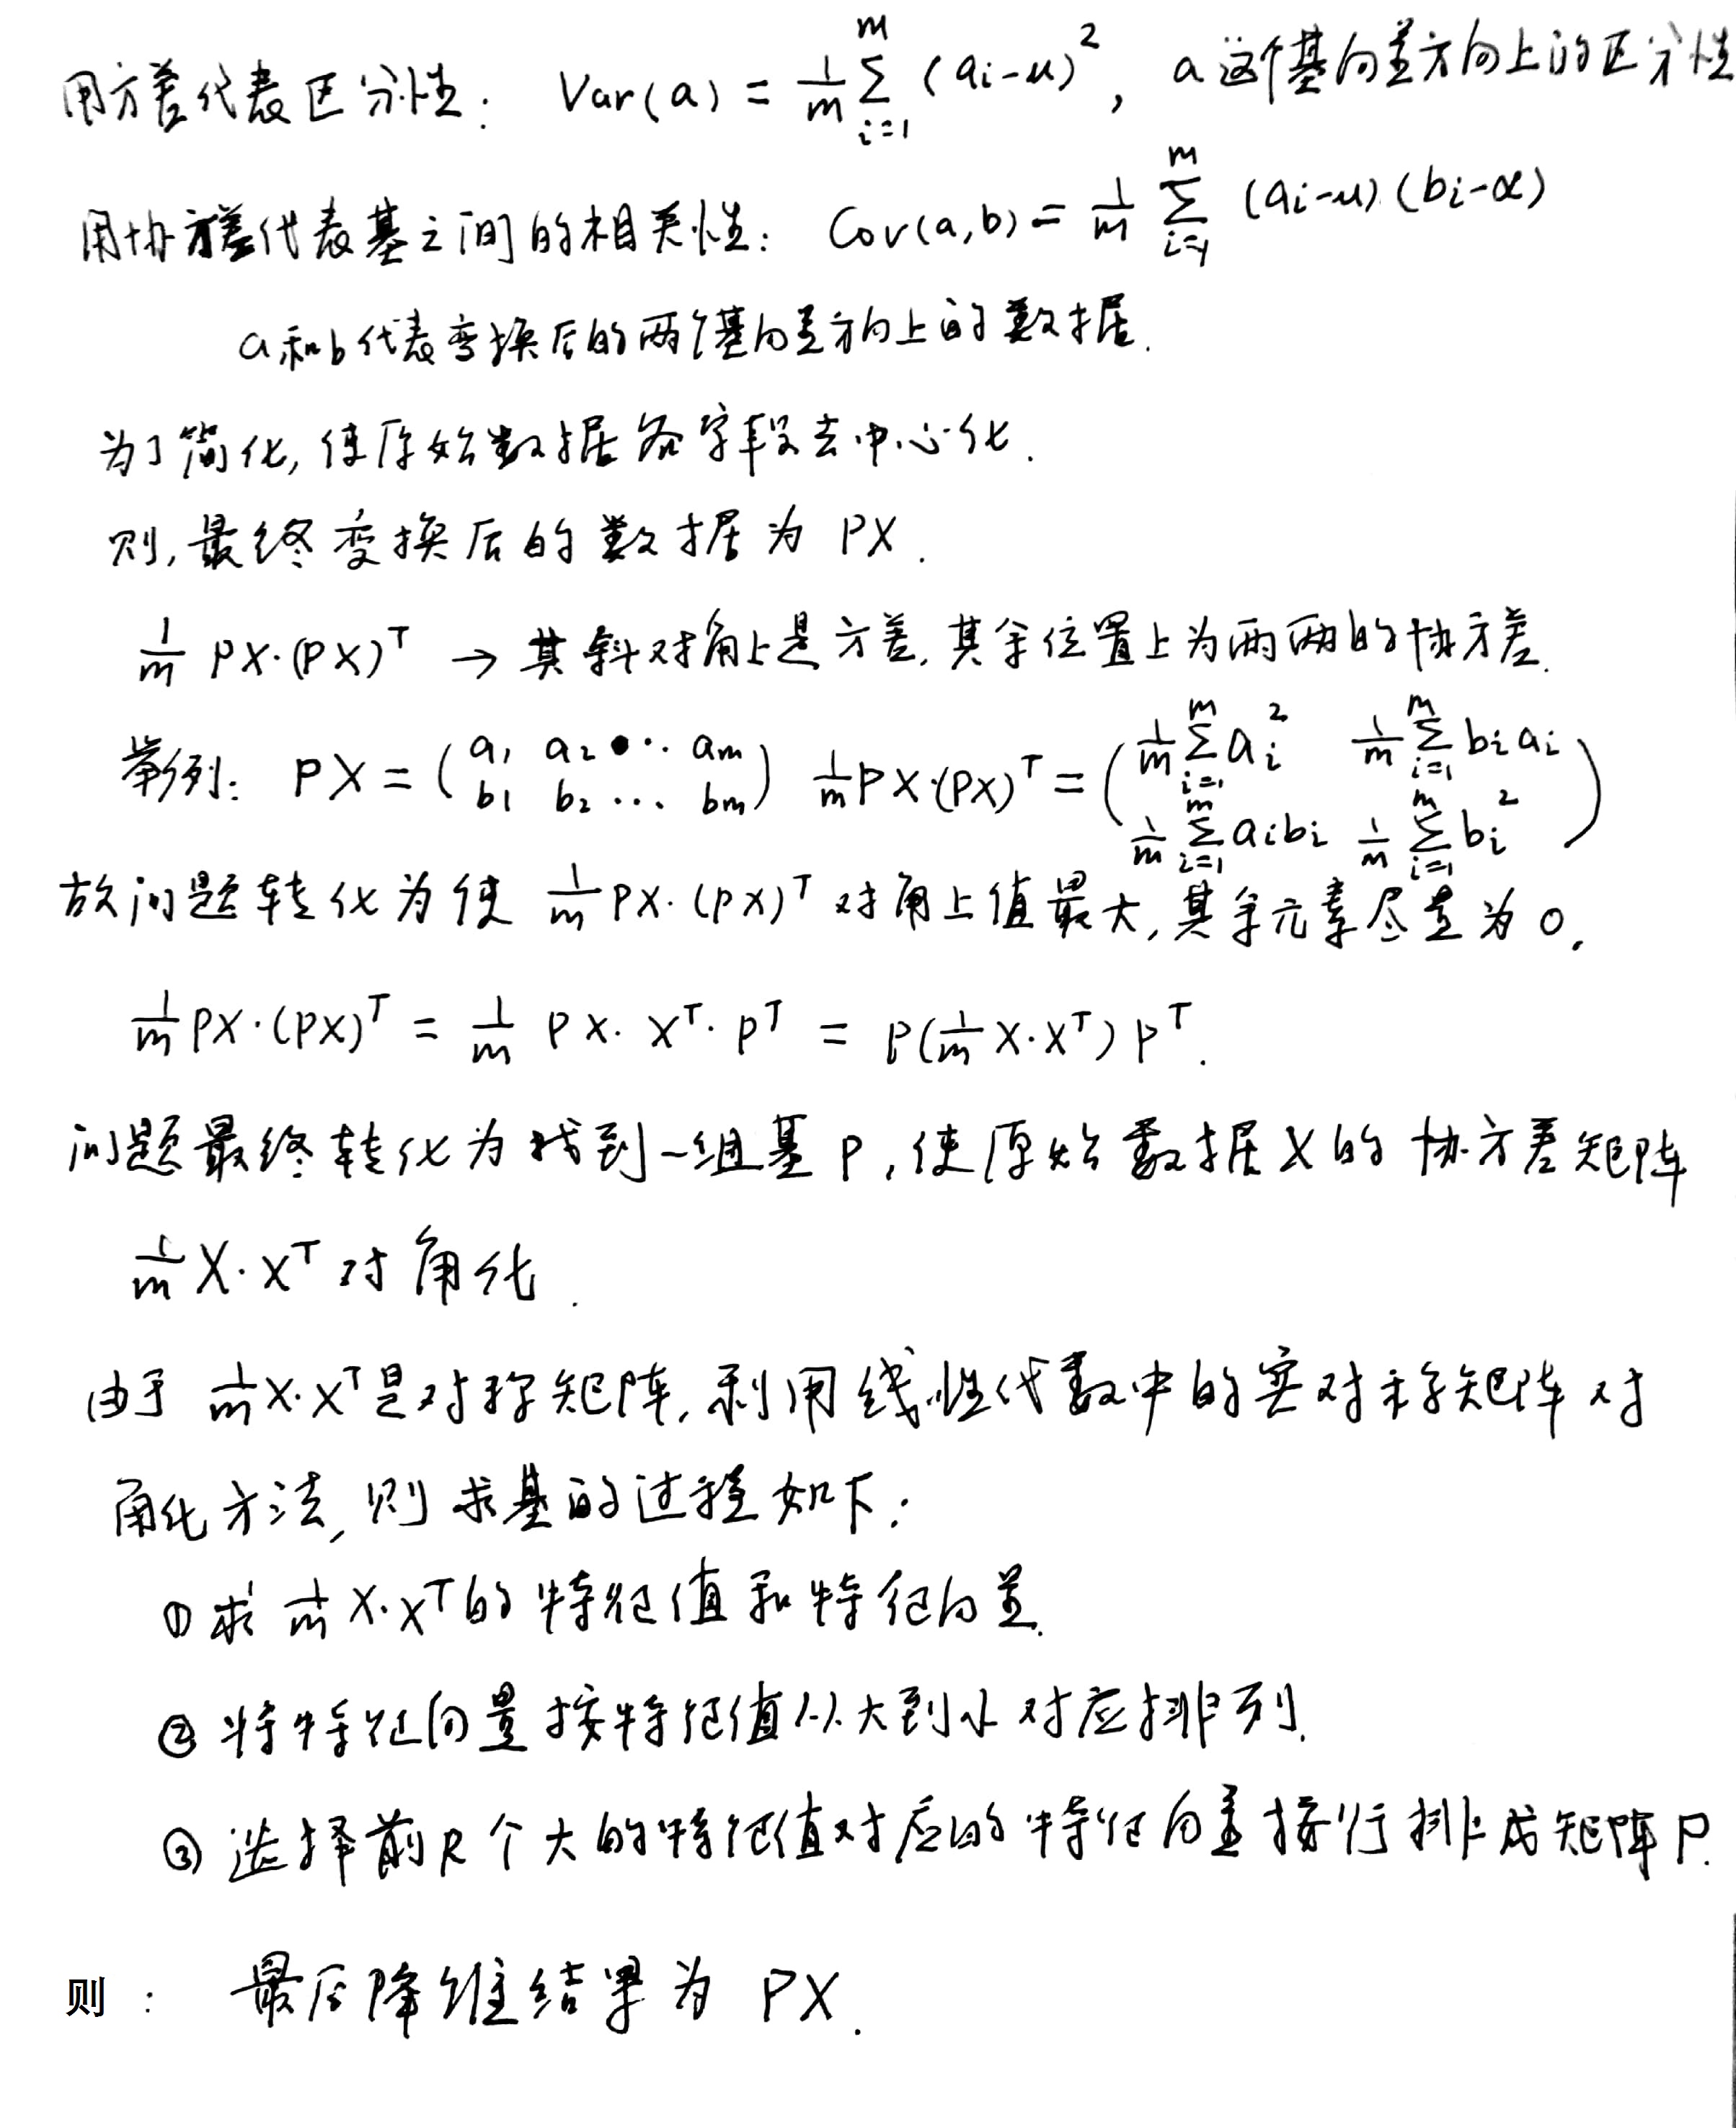 用方差代表区分性： Var(a) = 1/m ∑_{i=1}^{m} (ai-u)², a这个基向量方向上的区分性
用协方差代表基之间的相关性： Cov(a,b) = 1/m ∑_{i=1}^{m} (ai-u)(bi-α)
a和b代表变换后的两个基向量方向上的数据.
为了简化, 使原始数据各字段去中心化.
则, 最终变换后的数据为 PX.
1/m PX·(PX)^T → 其斜对角上是方差, 其余位置上为两两的协方差.
举例: PX = (a1 a2 ··· am; b1 b2 ··· bm) 1/m PX·(PX)^T = (1/m ∑_{i=1}^{m} ai² 1/m ∑_{i=1}^{m} bi ai; 1/m ∑_{i=1}^{m} ai bi 1/m ∑_{i=1}^{m} bi²)
故问题转化为使 1/m PX·(PX)^T 对角上值最大, 其余元素尽量为0.
1/m PX·(PX)^T = 1/m PX·X^T·P^T = P(1/m X·X^T)P^T.
问题最终转化为找到一组基P, 使原始数据X的协方差矩阵
1/m X·X^T 对角化.
由于 1/m X·X^T是对称矩阵, 利用线性代数中的实对称矩阵对
角化方法, 则求基的过程如下:
① 求 1/m X·X^T的特征值和特征向量.
② 将特征向量按特征值从大到小对应排列.
③ 选择前R个大的特征值对应的特征向量按行排成矩阵P.
则： 最后降维结果为 PX.